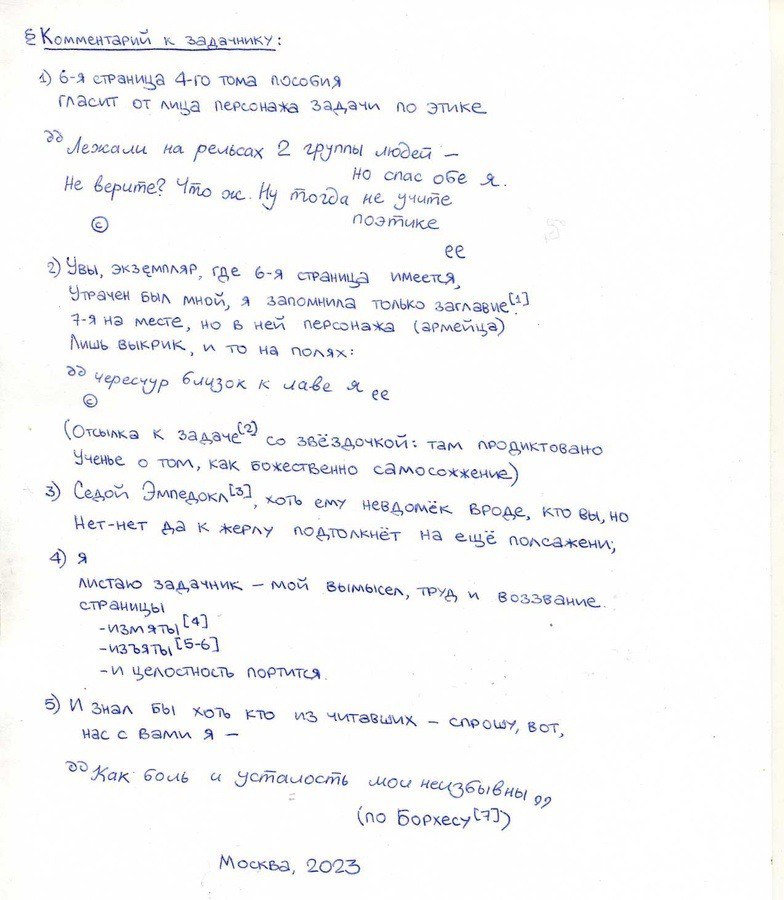 § Комментарий к задачнику:
1) 6-я страница 4-го тома пособия
гласит от лица персонажа задачи по этике
„Лежали на рельсах 2 группы людей –
но спас обе я.
Не верите? Что ж. Ну тогда не учите
поэтике
©
ее
2) Увы, экземпляр, где 6-я страница имеется,
Утрачен был мной, я запомнила только заглавие.[1]
7-я на месте, но в ней персонажа (армейца)
Лишь выкрик, и то на полях:
„чересчур близок к лаве я ее
©
(Отсылка к задаче[2] со звёздочкой: там продиктовано
Ученье о том, как божественно самосожжение)
3) Седой Эмпедокл[3], хоть ему невдомёк вроде, кто вы, но
Нет-нет да к жерлу подтолкнёт на ещё полсажени;
4) Я
листаю задачник – мой вымысел, труд и воззвание.
страницы
-измяты[4]
-изъяты[5-6]
-и целостность портится.
5) И знал бы хоть кто из читавших – спрошу, вот,
нас с вами я –
„Как боль и усталость мои неизбывны„
(по Борхесу[7])
Москва, 2023